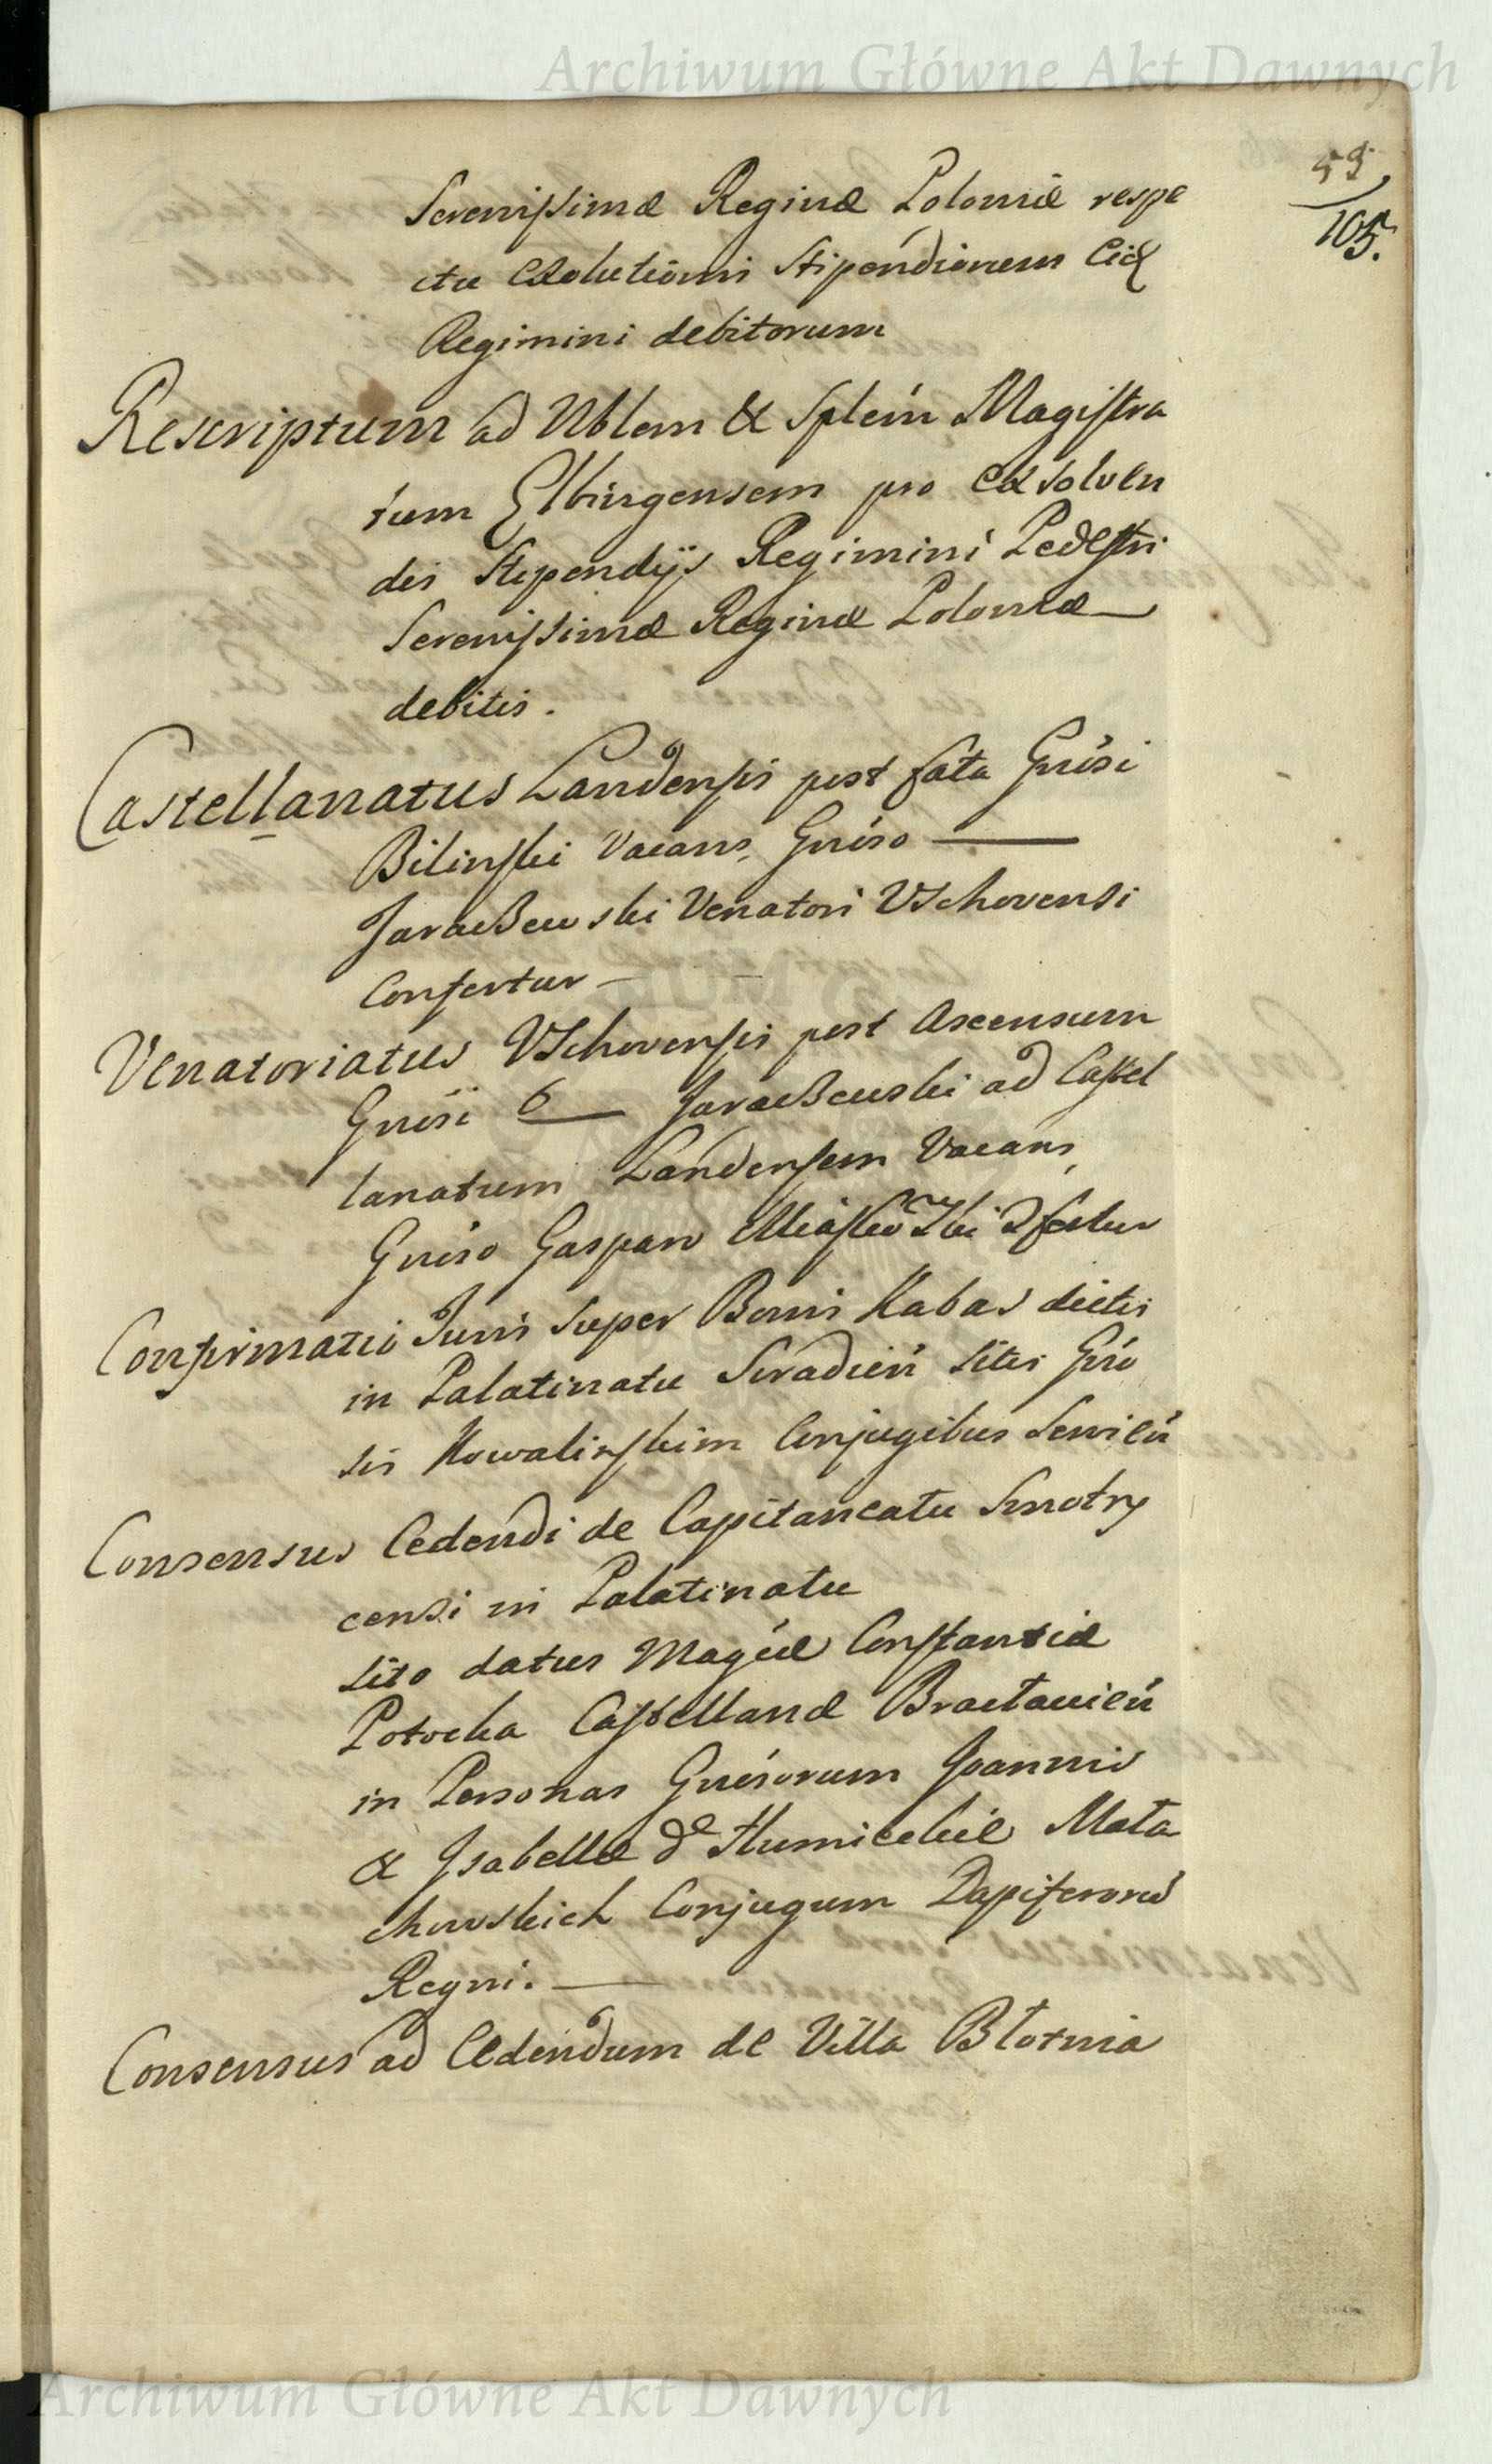 Archiwum Główne Akt Dawnych
55
105.
Serenissimæ Reginæ Poloniæ respe
ctu Exolutionis Stipendiorum Eidē
Regimini debitorum
Rescriptum ad Nblem & Splem̃ Magistra
tum Elbingensem pro Exsolven
dis Stipendijs Regimini Pedestri
Serenissimæ Reginæ Poloniæ
debitis.
Castellanatus Landensis post fata Gnŕosi
Bilinski Vacans, Gnŕoso
Jaraczewski Venatori Vschovensi
Confertur
Venatoriatus Vschovensis post Ascensum
Gnŕosi G Jaraczewski ad Castel
lanatum Landensem Vacans,
Gnŕoso Gaspari confertur
Confirmatio Juris super Bonis Kabas dictis
in Palatinatu Siradień sitis Gńro
sis Kowalinskim Conjugibus Servień
Consensus Cedendi de Capitaneatu Smotry
censi in Palatinatu
sito datus Magcæ Constantiæ
Potocka Castellanæ Bractavień
in Personas Gnŕosorum Joannis
& Isabellæ de Humieckie Mała
chowskich Conjugum Dapiferorū
Regni.
Consensus ad Cedendum de Villa Błotnia
Archiwum Główne Akt Dawnych